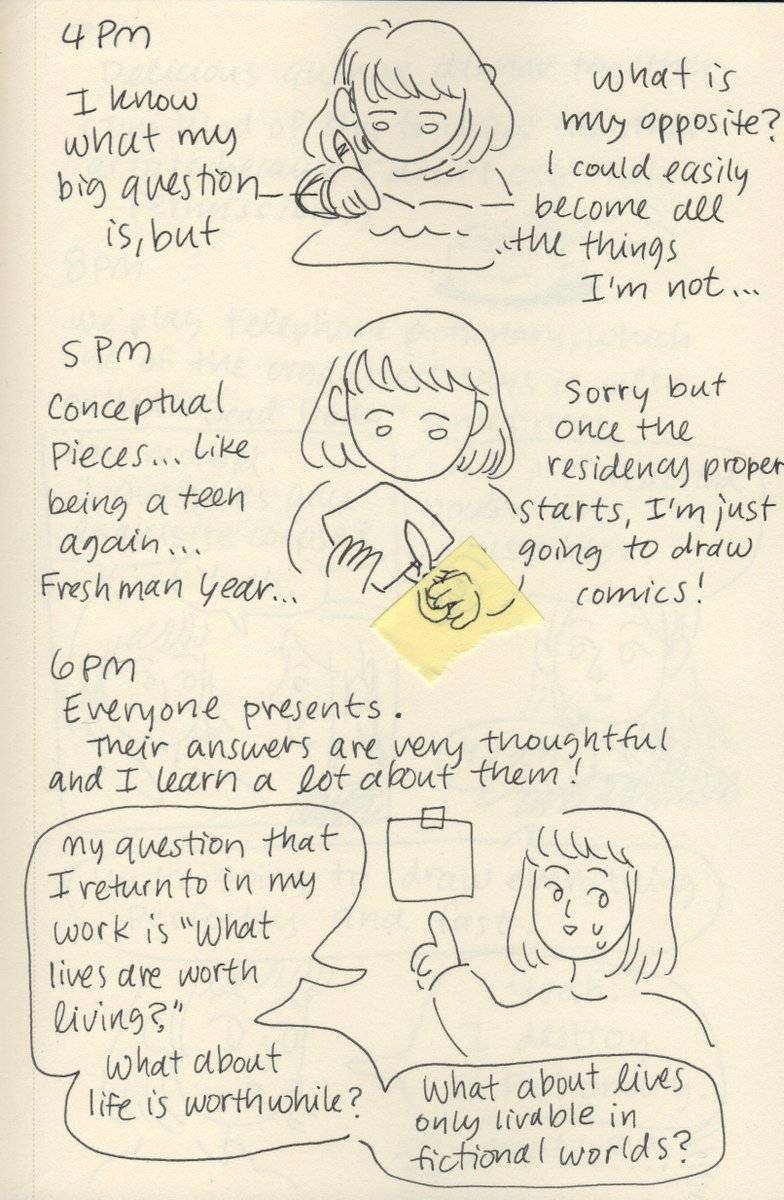 4 PM
I know
what my
big question
is, but
What is
my opposite?
I could easily
become all
the things
I'm not...
5 PM
Conceptual
pieces... like
being a teen
again...
Freshman year...
Sorry but
once the
residency proper
starts, I'm just
going to draw
comics!
6 PM
Everyone presents.
Their answers are very thoughtful
and I learn a lot about them!
my question that
I return to in my
work is "What
lives are worth
living?"
What about
life is worthwhile?
What about lives
only livable in
fictional worlds?